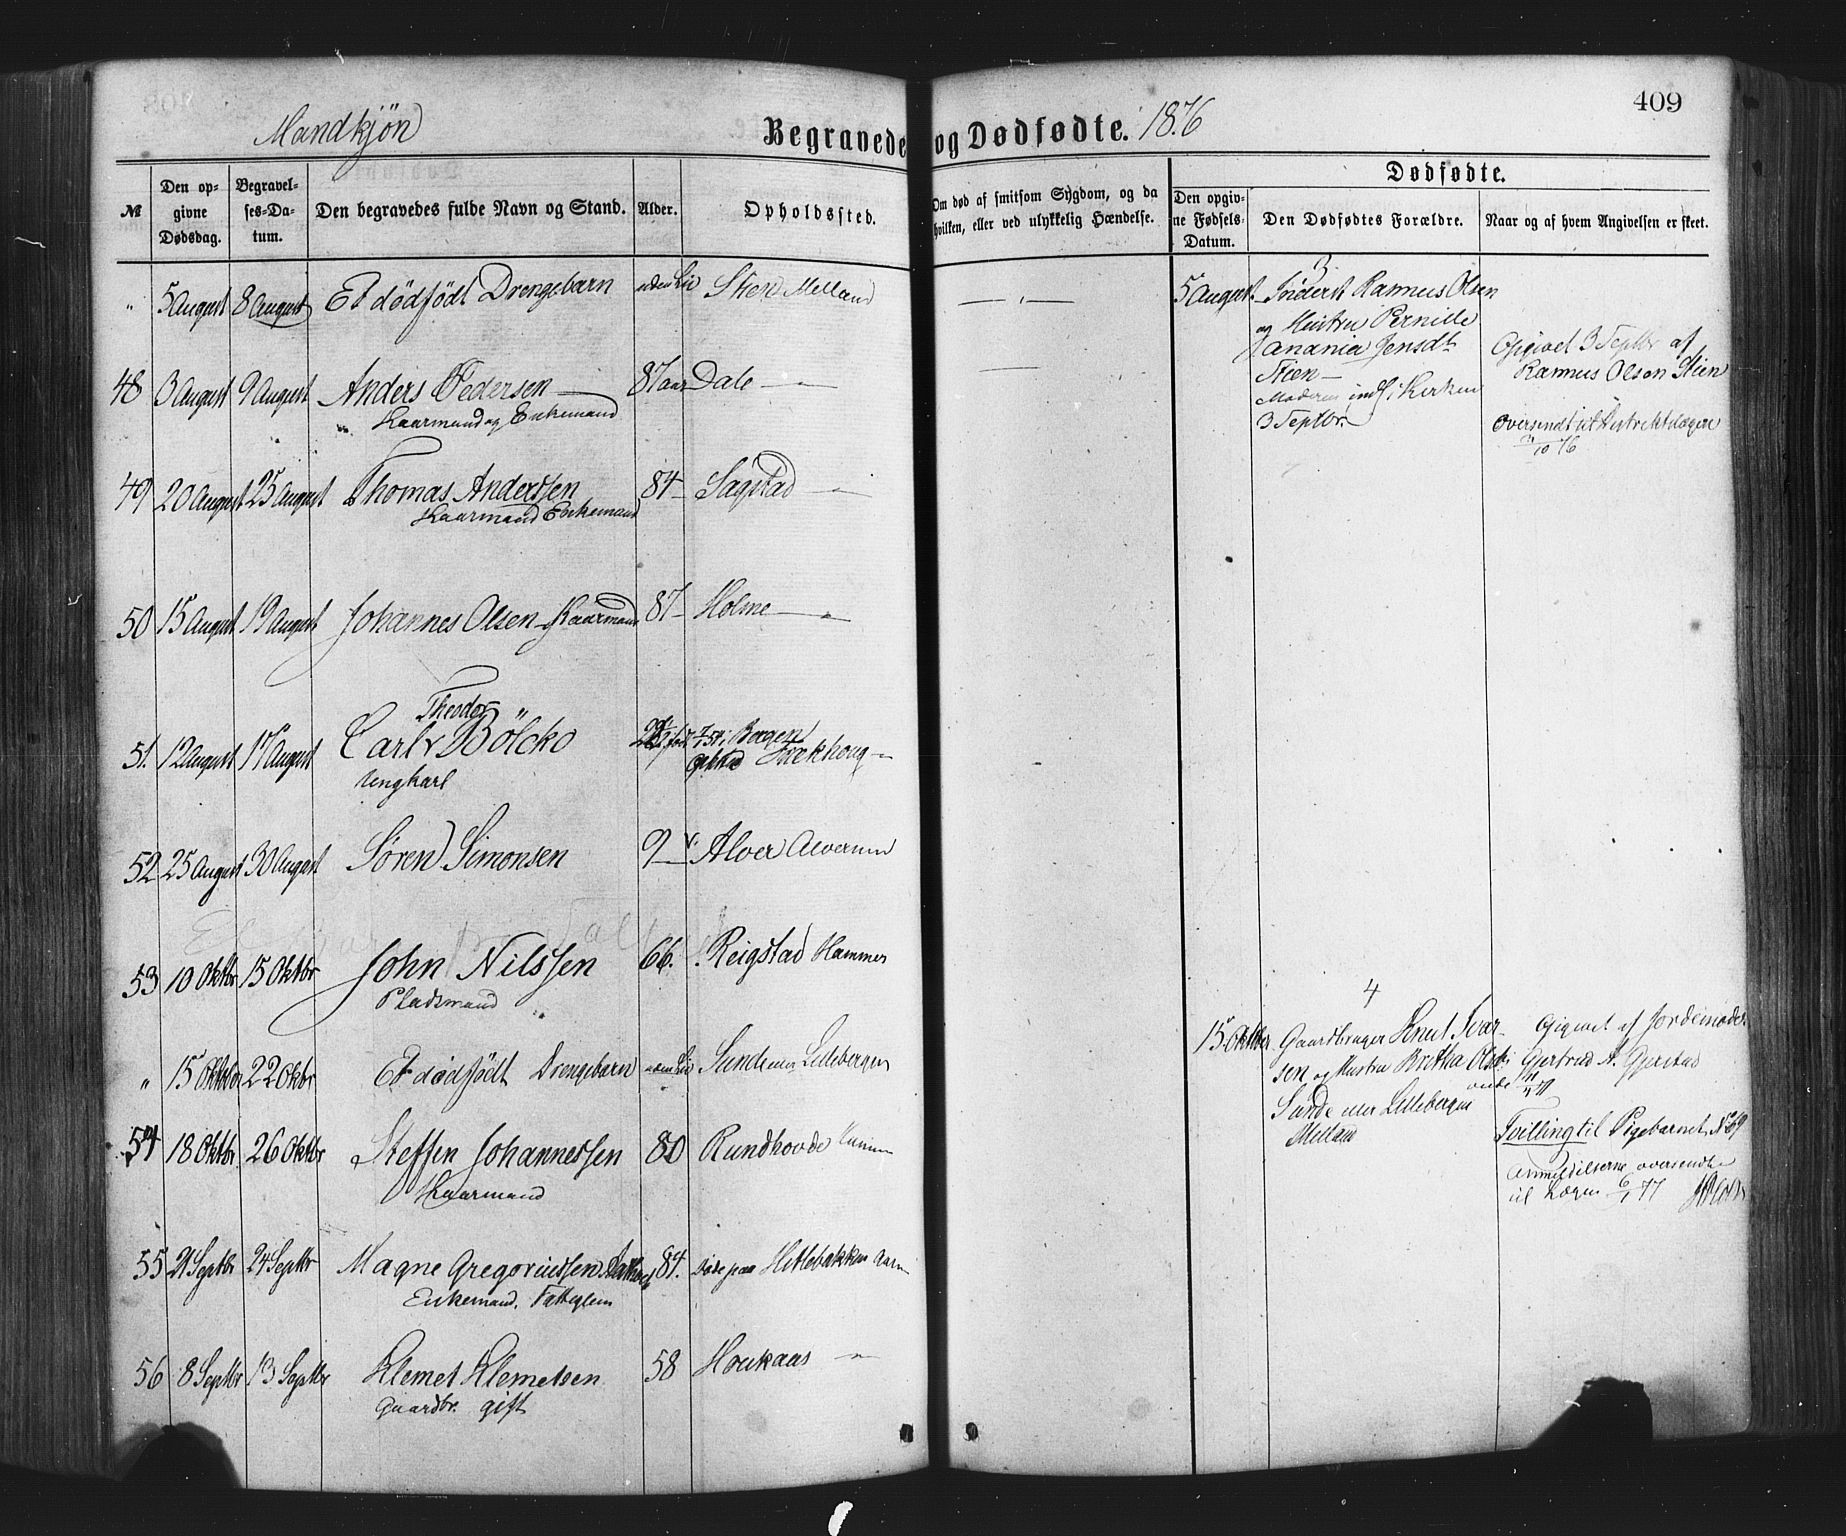 Mandkjön
Begravede og Dødfødte. 1876
409
№
Den opgivne Dødsdag.
Begravelses-Datum.
Den begravedes fulde Navn og Stand.
Alder.
Opholdssted.
Om død af smitsom Sygdom, og da hvilken, eller ved ulykkelig Hændelse.
Dødfødte.
Den opgivne Fødsels-Datum.
Den Dødfødtes Forældre.
Naar og af hvem Angivelsen er skeet.
" 5 August 8 August Et dödfödt Drengebarn uden Liv Sten Melland
5 August 3
Inderst Rasmus Olsen
og Hustru Pernille
Anania Jensdt
Steen
Moderen indl. i Kirken
3 Septbr.
Opgivet 3 Septbr af
Rasmus Olsen Stien
oversendt til Distriktslægen
3/10 76
48 3 August 9 August Anders Pedersen 87 aar Dale
Kaarmand og Enkemand
49 20 August 25 August Thomas Anderssen 84 Sagstad
Kaarmand Enkemand
50 15 August 19 August Johannes Olsen Kaarmand 87 Holme
Theodor
51. 12 August 17 August Carl Bölcko
Ungkarl
Bergen
52 25 August 30 August Søren Simonsen 9 Alver Alverund
53 10 Oktbr 15 Oktbr John Nilssen 66. Reigstad Hammer
Pladsmand
" 15 Oktbr 22 Oktbr Et dödfödt Drengebarn uden Liv Sunde eller Lilleberge
15 Oktber 4
Gaardbruger Knut Ivar-
sen og Hustru Britha Olsdt
Sunde eller Lilleberge
Melland
Opgivet af Jordemoder
Gjertrud A. Gjerstad
Tvilling til Pigebarnet No 69
Anmeldelserne oversendte
til Lægen 6/1 77
54 18 Oktbr 26 Oktbr Steffen Johannessen 80 Rundhovde
Kaarmand
55 21 Septbr 24 Septbr Magne Gregoriussen 84. Døde paa Hetlebakken
Enkemand. Fattiglem
56 8 Septbr 13 Septbr Klemet Klemetsen 58 Houkaas
Gaardbr. gift